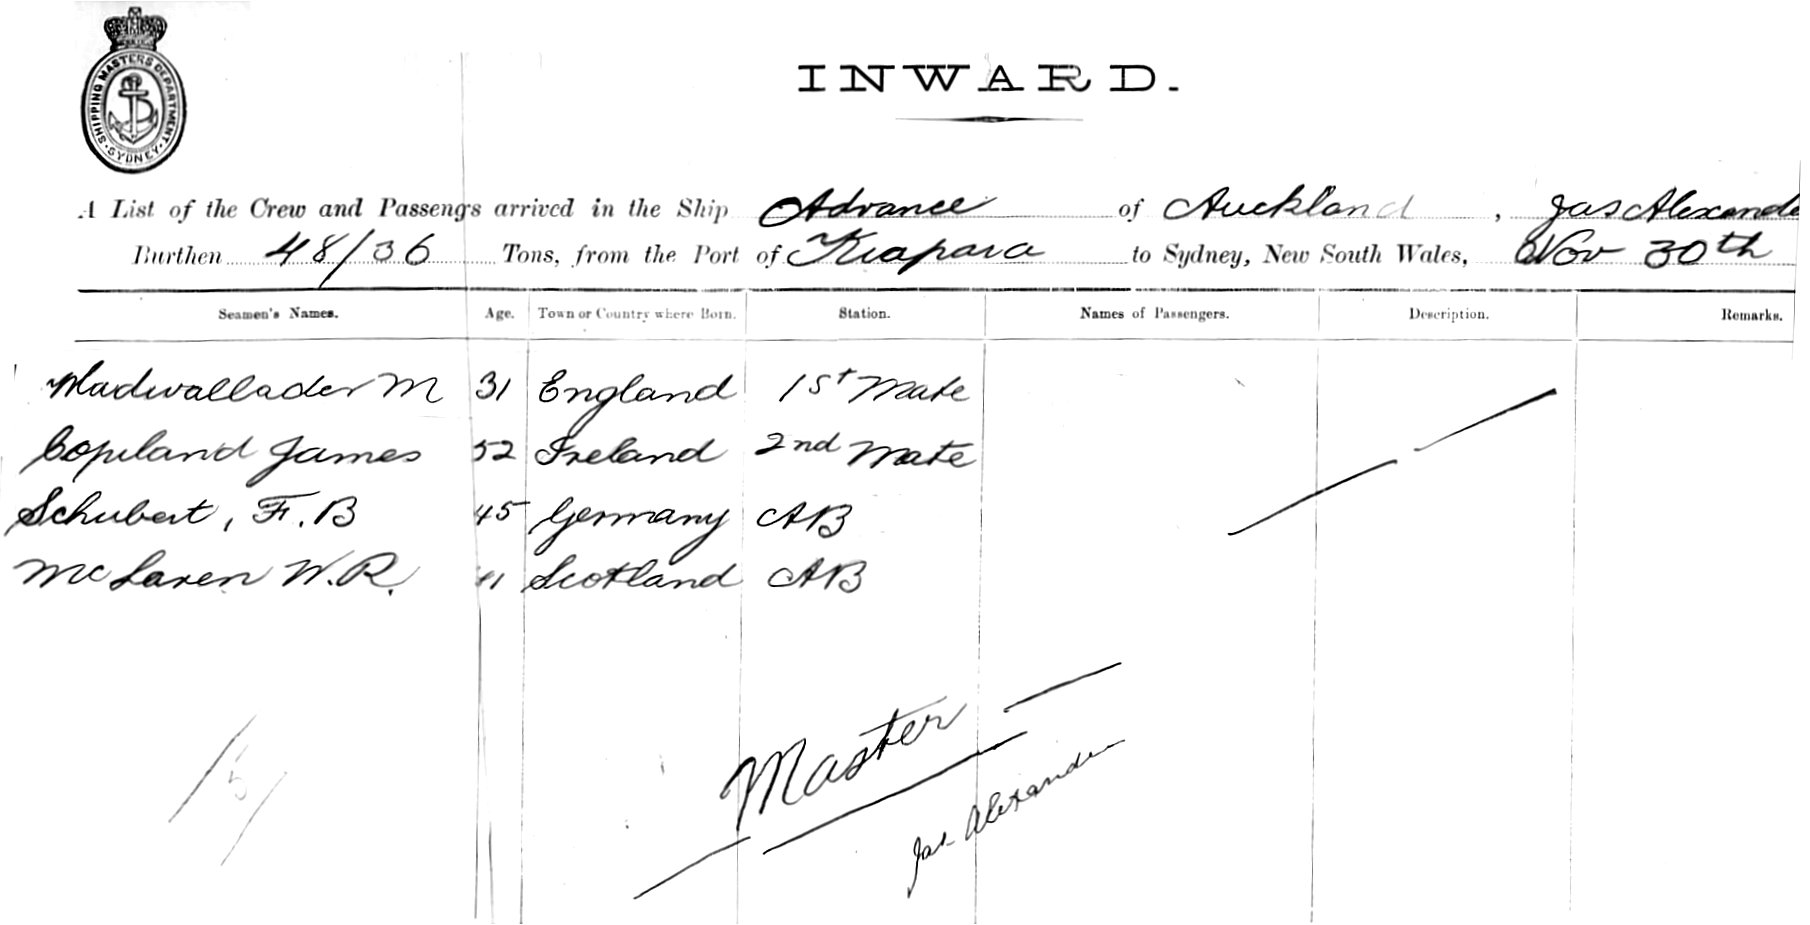 SHIPPING MASTERS DEPARTMENT. SYDNEY.
INWARD.
A List of the Crew and Passengrs arrived in the Ship Advance of Auckland, Jas Alexande
Burthen 48/36 Tons, from the Port of Kiapara to Sydney, New South Wales, Nov 30th
Seamen's Names. Age. Town or Country where Born. Station. Names of Passengers. Description. Remarks.
M 31 England 1st Mate
Copeland James 52 Ireland 2nd Mate
Schubert, F. B 45 Germany AB
McLaren W. R. Scotland AB
Master
Jas Alexander